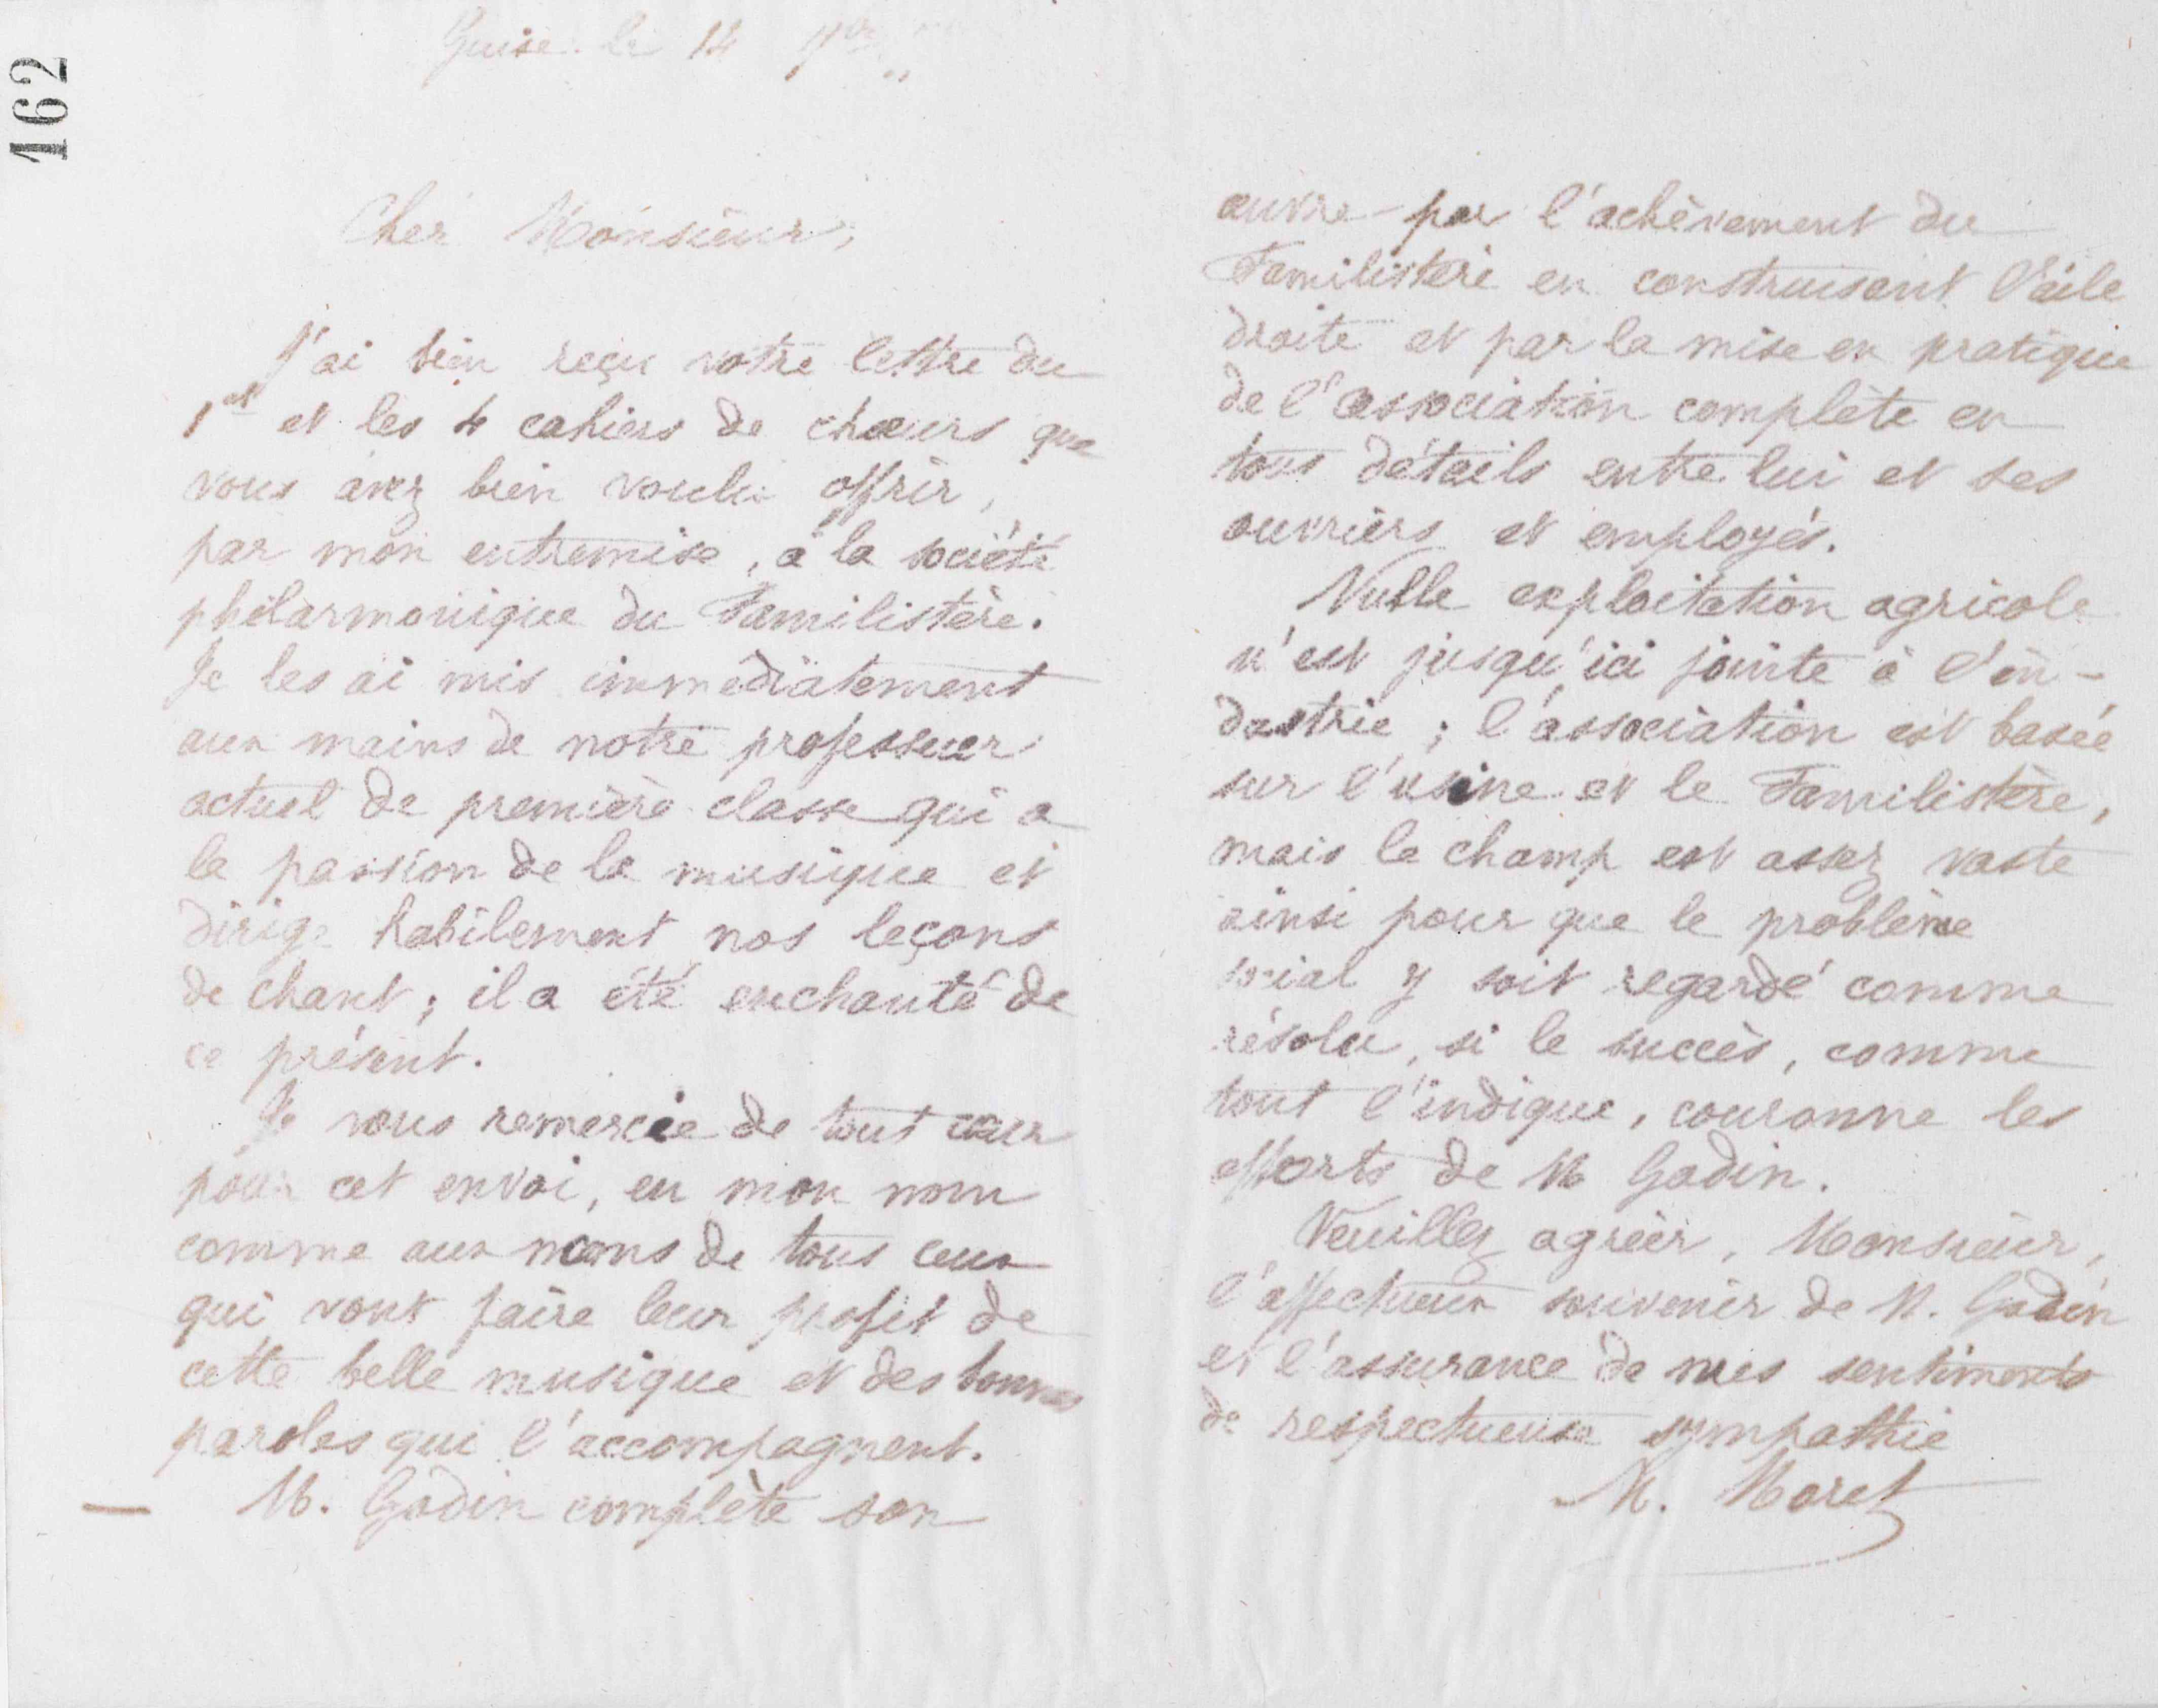 162
Guise. le 14
Cher Monsieur,
J'ai bien reçu votre lettre du
1er et les 4 cahiers de chœurs que
vous avez bien voulu offrir,
par mon entremise, à la société
philarmonique du Familistère.
Je les ai mis immédiatement
aux mains de notre professeur
actuel de première classe qui a
la passion de la musique et
dirige habilement nos leçons
de chant ; il a été enchanté de
ce présent.
Je vous remercie de tout cœur
pour cet envoi, en mon nom
comme aux noms de tous ceux
qui vont faire leur profit de
cette belle musique et des bonnes
paroles qui l'accompagnent.
M. Godin complète son
œuvre par l'achèvement du
Familistère en construisant l'aile
droite et par la mise en pratique
de l'association complète en
tous détails entre lui et ses
ouvriers et employés.
Nulle exploitation agricole
n'est jusqu'ici jointe à l'in-
dustrie ; l'association est basée
sur l'usine et le Familistère,
mais le champ est assez vaste
ainsi pour que le problème
social y soit regardé comme
résolu, si le succès, comme
tout l'indique, couronne les
efforts de M Godin.
Veuillez agréer, Monsieur,
l'affectueux souvenir de M. Godin
et l'assurance de mes sentiments
de respectueuse sympathie
M. Moret